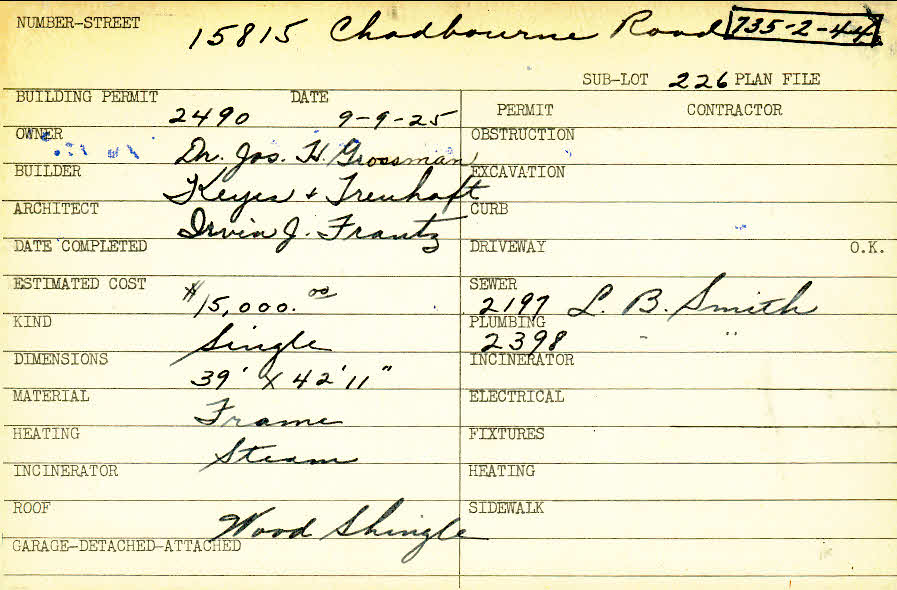 NUMBER-STREET 15815 Chadbourne Road 735-2-44
SUB-LOT 226 PLAN FILE
BUILDING PERMIT 2490 DATE 9-9-25
PERMIT CONTRACTOR
OWNER Dr. Jos. H. Grossman
OBSTRUCTION
BUILDER Keyes + Treuhaft
EXCAVATION
ARCHITECT Irvin J. Frantz
CURB
DATE COMPLETED
DRIVEWAY O.K.
ESTIMATED COST $15,000.00
SEWER 2197 L. B. Smith
KIND Single
PLUMBING 2398 " "
DIMENSIONS 39' X 42'11"
INCINERATOR
MATERIAL Frame
ELECTRICAL
HEATING Steam
FIXTURES
INCINERATOR
HEATING
ROOF Wood Shingle
SIDEWALK
GARAGE-DETACHED-ATTACHED